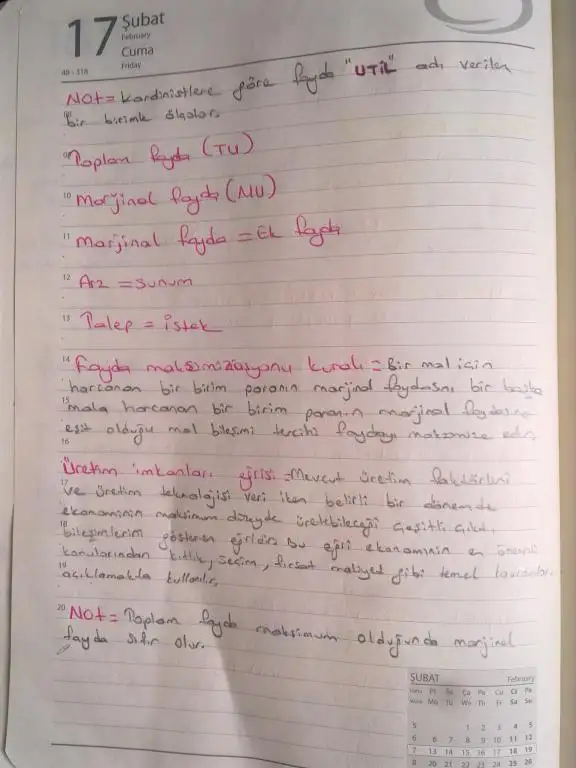 17 Şubat
February
Cuma
Friday
48 - 318
NOt = kardinistlere göre fayda "UTİL" adı verilen
bir birimle ölçülür.
09 Toplam fayda (TU)
10 Marjinal fayda (MU)
11 Marjinal fayda = Ek fayda
12 Arz = sunum
13 Talep = istek
14 Fayda maksimizasyonu kuralı = Bir mal için
harcanan bir birim paranın marjinal faydasını bir başka
15 mala harcanan bir birim paranın marjinal faydasına
eşit olduğu mal bileşimi tercihi faydayı maksimize eder.
16
Üretim imkanları eğrisi = Mevcut üretim faktörleri
17 ve üretim teknolojisi veri iken belirli bir dönemde
ekonominin maksimum düzeyde üretebileceği çeşitli çıktı
18 bileşimlerini gösteren eğridir. Bu eğri ekonominin en önemli
konularından kıtlık, seçim, fırsat maliyet gibi temel kavramları
19 açıklamakta kullanılır.
20 NOt = Toplam fayda maksimum olduğunda marjinal
fayda sıfır olur.
ŞUBAT February
Pt Sa Ça Pe Cu Ct Pa
Mo Tu We Th Fr Sa Su
5 1 2 3 4 5
6 6 7 8 9 10 11 12
7 13 14 15 16 17 18 19
8 20 21 22 23 24 25 26